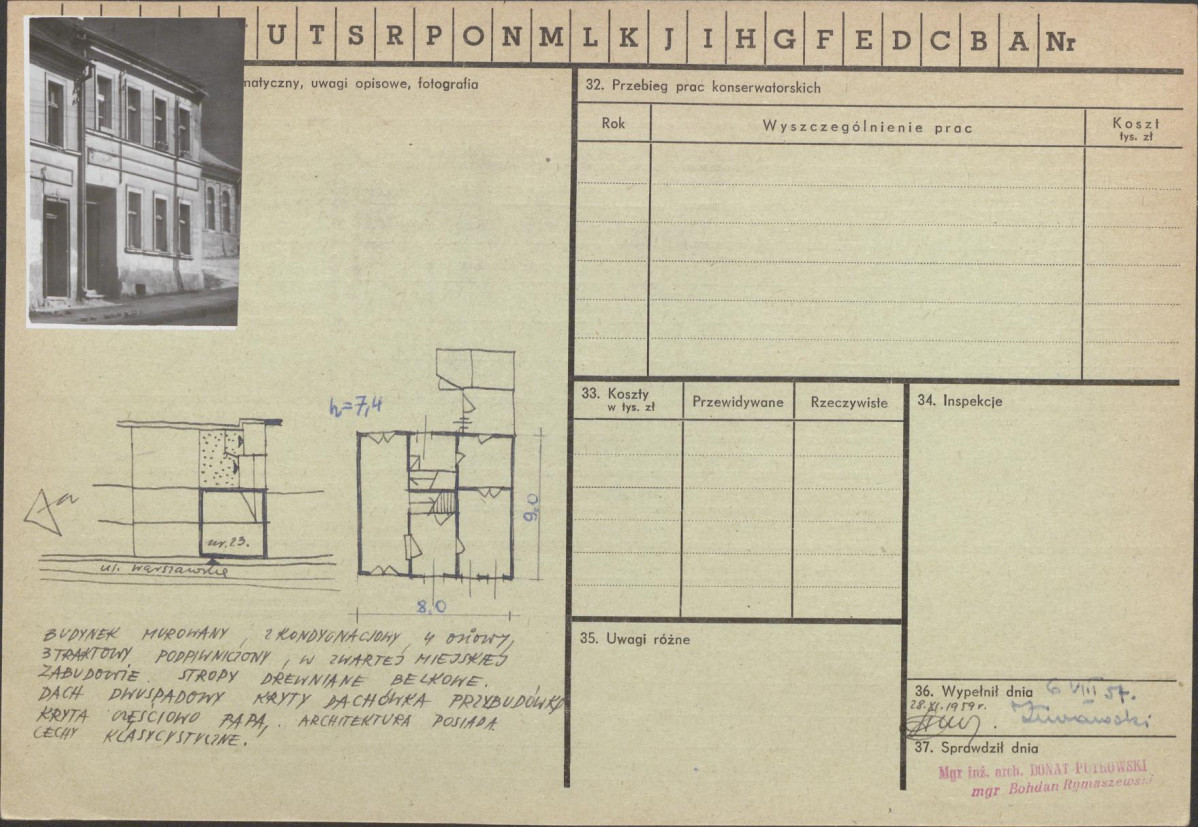 U T S R P O N M L K J I H G F E D C B A Nr
matyczny, uwagi opisowe, fotografia
h=7,4
9,0
8,0
nr. 23.
ul. Warszawska
BUDYNEK MUROWANY, 2 KONDYGNACJOWY, 4 OSIOWY,
3 TRAKTOWY PODPIWNICZONY, W ZWARTEJ MIEJSKIEJ
ZABUDOWIE. STROPY DREWNIANE BELKOWE.
DACH DWUSPADOWY KRYTY DACHÓWKĄ PRZYBUDÓWKA
KRYTA CZĘŚCIOWO PAPĄ. ARCHITEKTURA POSIADA
CECHY KLASYCYSTYCZNE.
32. Przebieg prac konserwatorskich
Rok
Wyszczególnienie prac
Koszt
tys. zł
33. Koszty
w tys. zł
Przewidywane
Rzeczywiste
34. Inspekcje
35. Uwagi różne
36. Wypełnił dnia 6 VIII 57.
28.XI.1959 r.
37. Sprawdził dnia
Mgr inż. arch. DONAT PUTKOWSKI
mgr Bohdan Rymaszewski